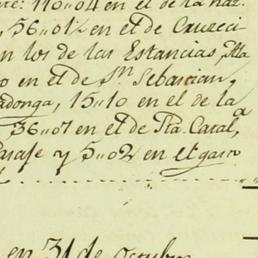 110..04 en el de la
, 56..01½ en el de Cruzeci
n los de las Estancias,
o en el de Sn. Sebastian,
adonga, 15..10 en el de la
36..07 en el de Sta. Catala,
Parage y 5..02 en el gasto
en 31 de octubre